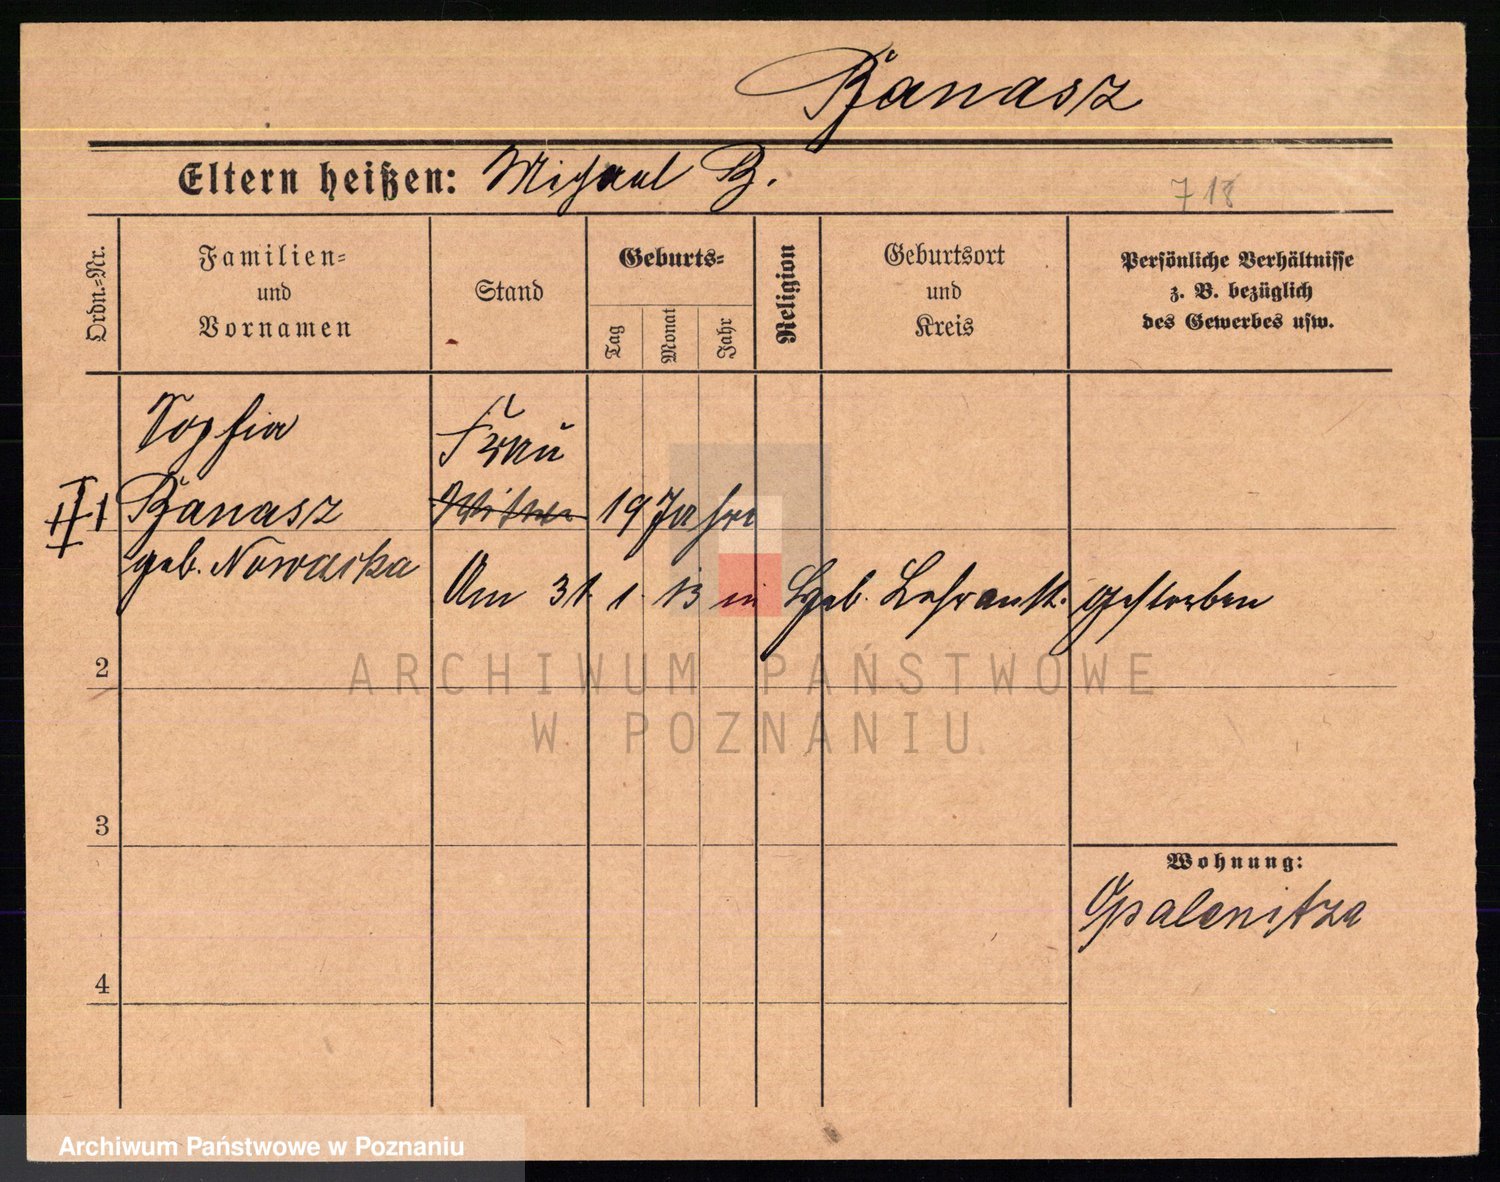 Banasz
Eltern heißen: Michael B.
718
Ordn.-Nr.
Familien-
und
Vornamen
Stand
Geburts-
Tag
Monat
Jahr
Religion
Geburtsort
und
Kreis
Persönliche Verhältnisse
z. B. bezüglich
des Gewerbes usw.
Sophia
Frau
II 1 Banasz
19 Jahre
geb. Nowacka
Am 31. 1. 13 in gestorben
2
ARCHIWUM PAŃSTWOWE
W POZNANIU
3
Wohnung:
Opalenitza
4
Archiwum Państwowe w Poznaniu